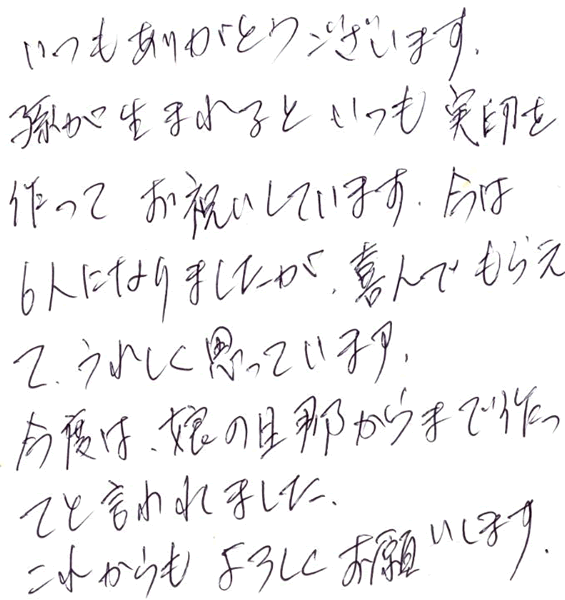 いつもありがとうございます.
孫が生まれるといつも実印を
作って お祝いしています. 今は
6人になりましたが、喜んでもらえ
て、うれしく思っています.
今度は、娘の旦那からまで作っ
てと言われました.
これからもよろしくお願いします.